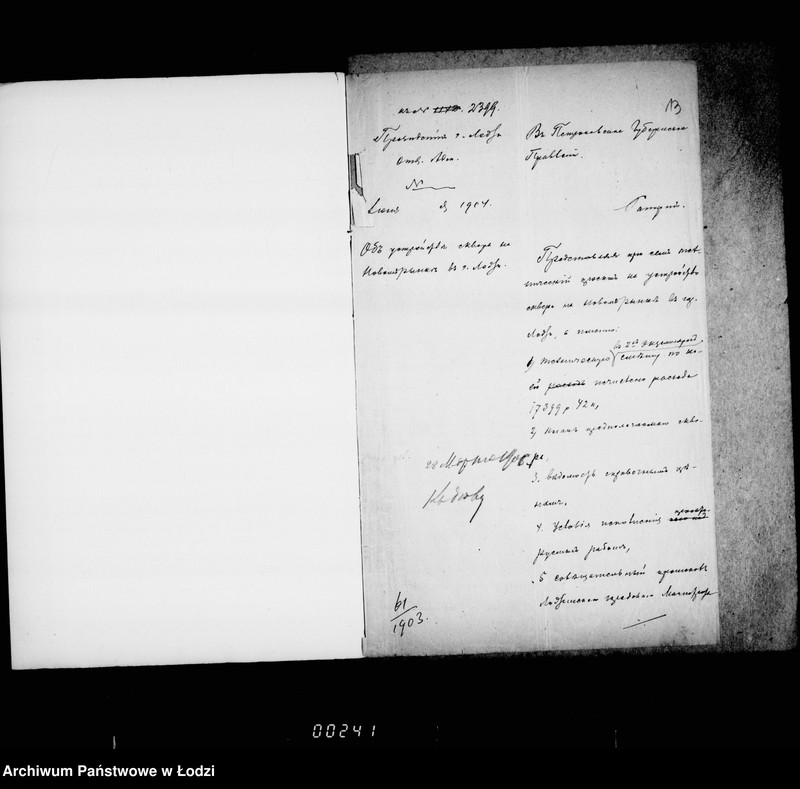 13
къ № 2399.
Президентъ г. Лодзи
№
Іюня 1904.
Объ устройствѣ сквера на
Новомъ рынкѣ въ г. Лодзи.
Въ Петроковское Губернское
Правленіе.
Рапортъ.
Представляя при семъ тех-
ническій проектъ на устройство
сквера на Новомъ рынкѣ въ гор.
Лодзи, а именно:
1) техническую въ 2хъ экземплярахъ смѣту по ко-
ей исчислено расхода
17399 р 42 к,
2) планъ предполагаемаго скве-
ра,
3. вѣдомость справочнымъ цѣ-
намъ,
4. Условія исполненія
работъ,
5 совѣщательный протоколъ
Лодзинскаго городового Магистрата
22 Марта
Къ дѣлу
61/1903.
00241
Archiwum Państwowe w Łodzi